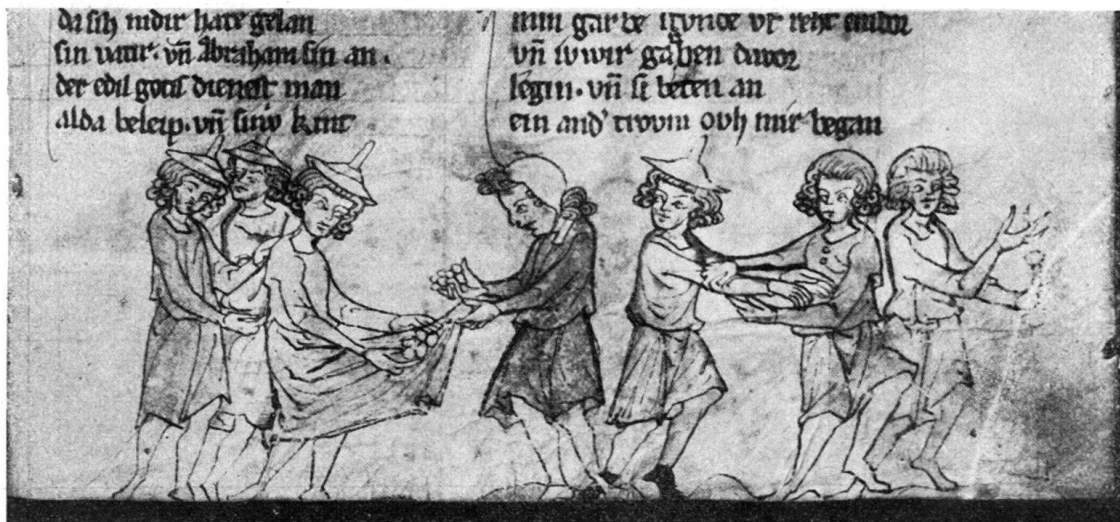 da sih nidir hate gelan
sin vatir· vn̄ Abraham sin an·
der edil gotis dienest man
alda beleip· vn̄ siniv kint
min garbe ufreht
vn̄ iwir garben davor
legin· vn̄ si beten an
ein and' trovm ovh mir began